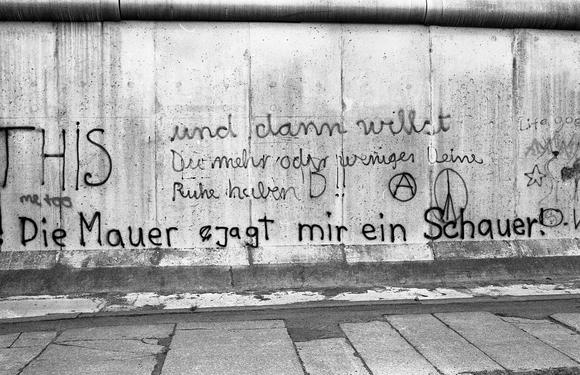 THIS
und dann willst
Du mehr oder weniger deine
Ruhe haben D!!
me too
! Die Mauer ejagt mir ein Schauer!